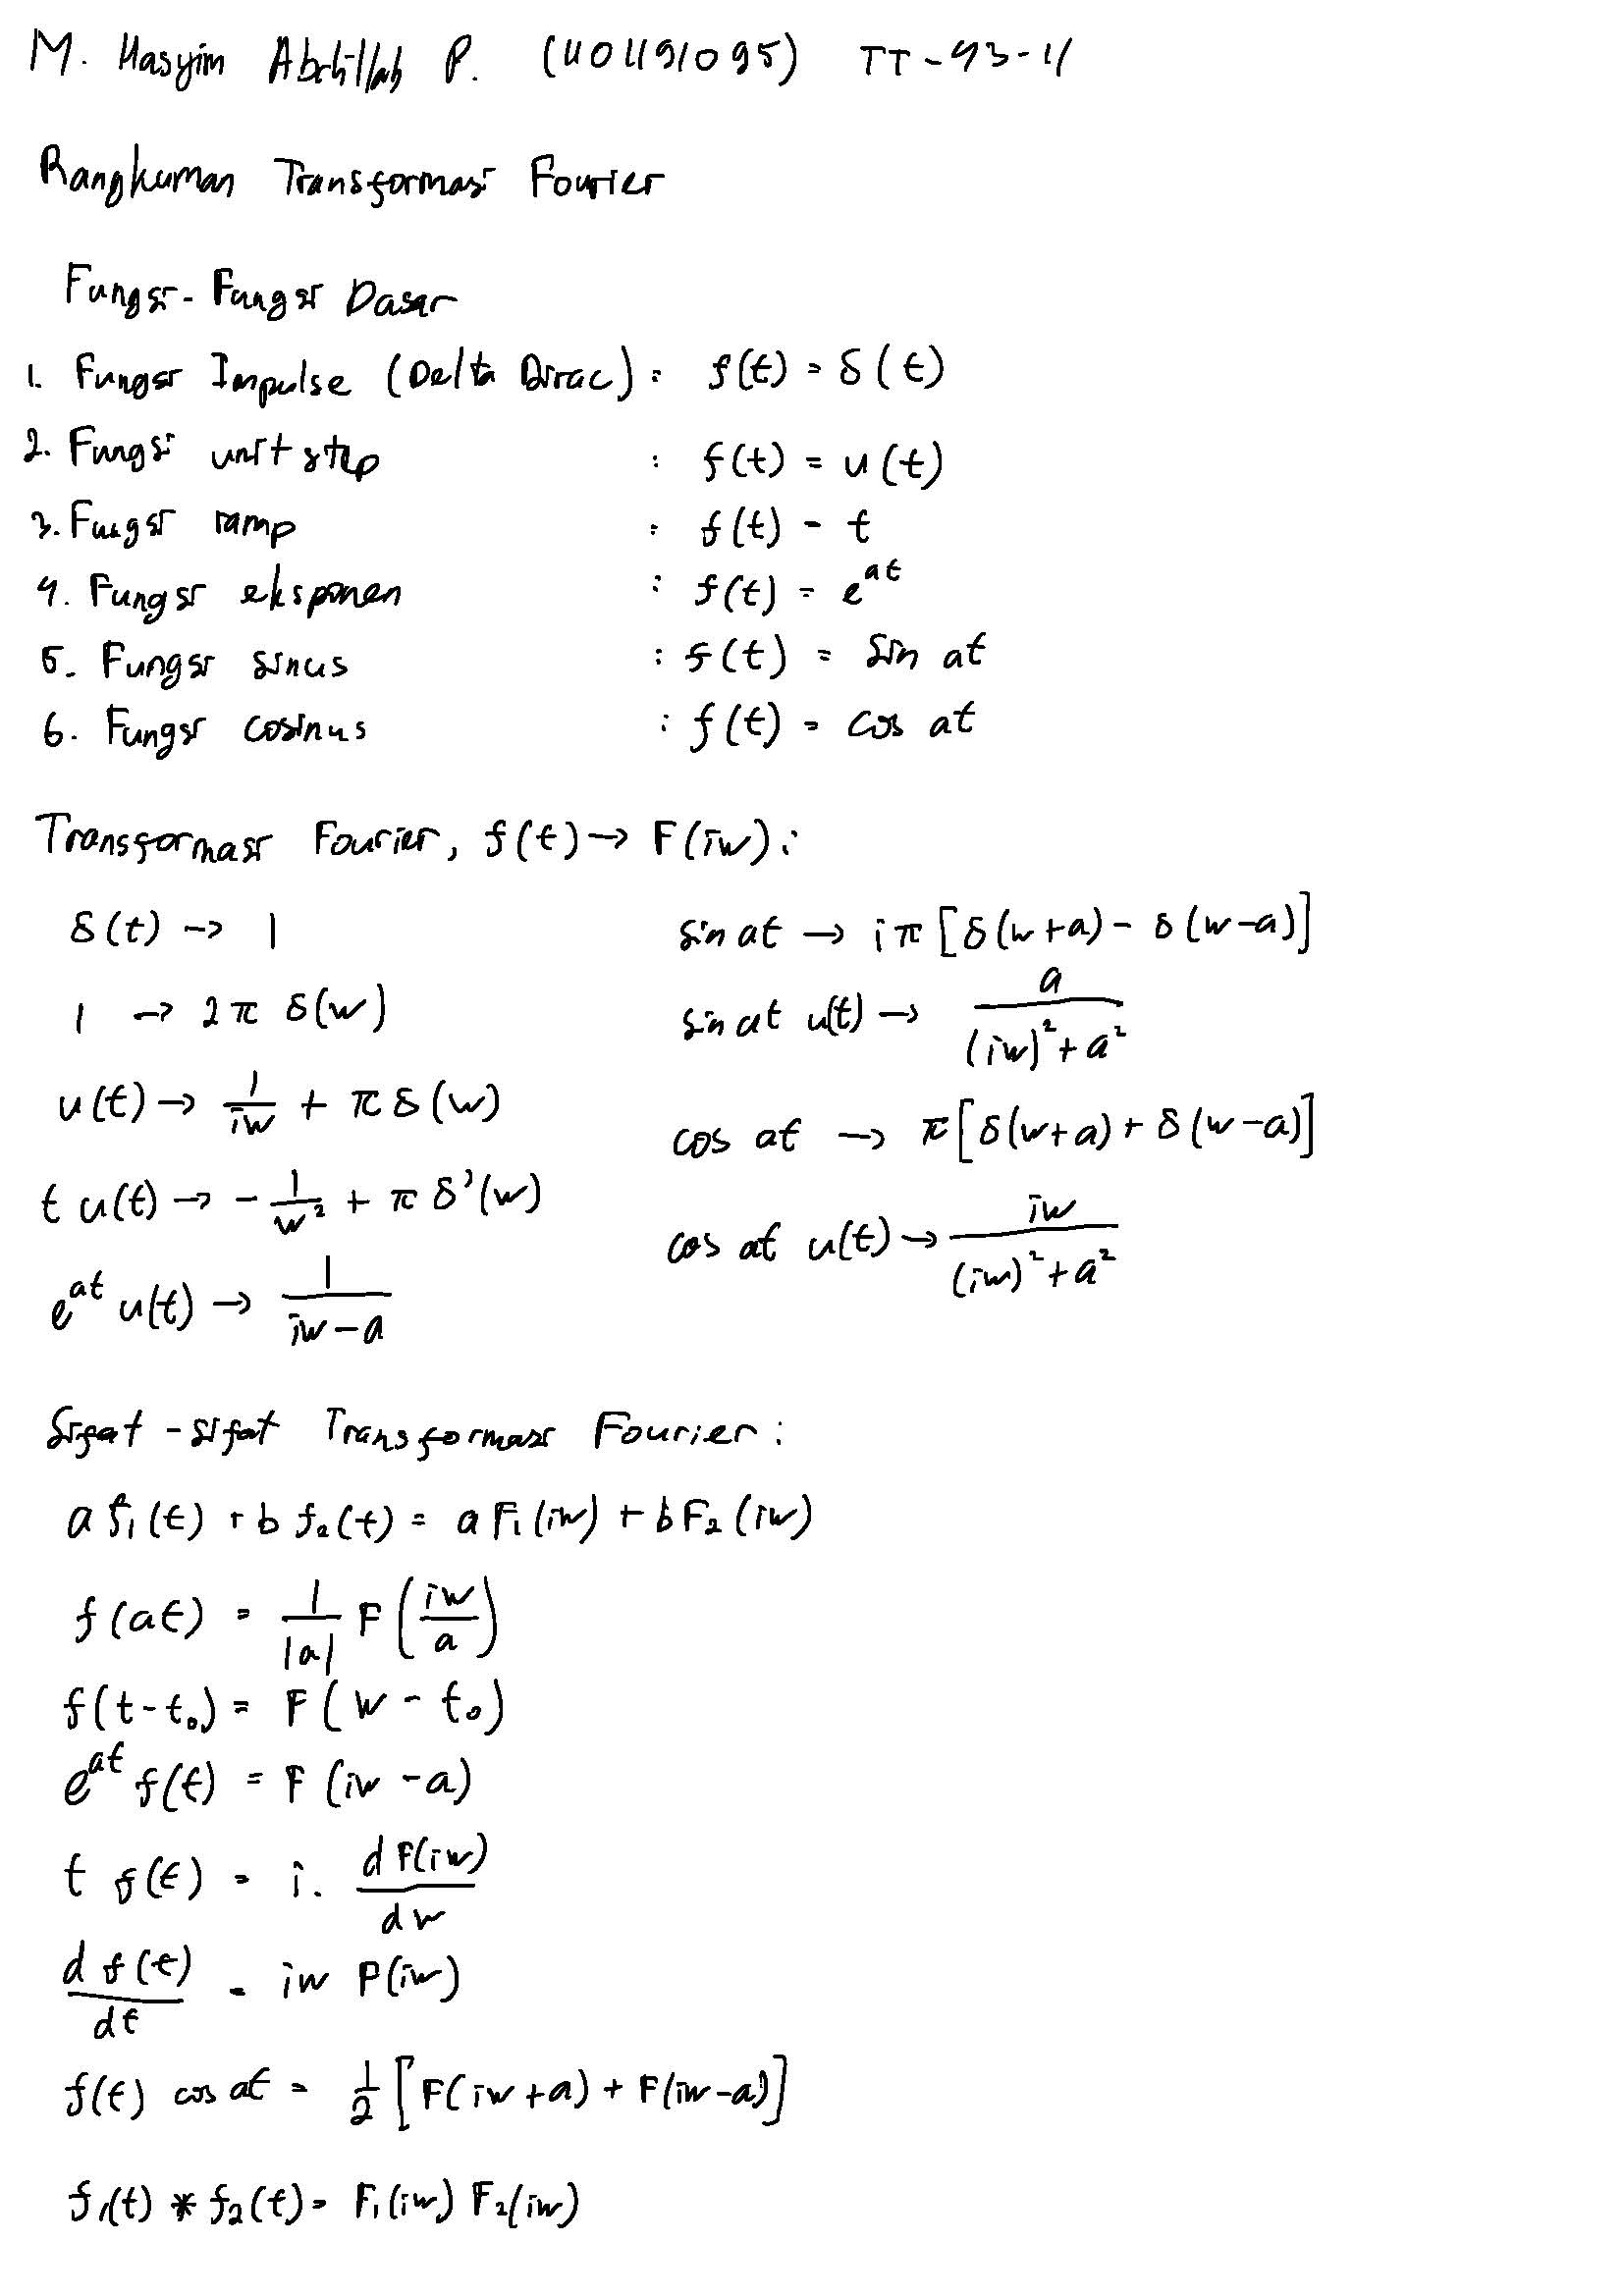 M. Hasyim Abdillah P. (1101191095) TT-43-11
Rangkuman Transformasi Fourier
Fungsi-Fungsi Dasar
1. Fungsi Impulse (Delta Dirac) : f(t) = δ(t)
2. Fungsi unit step : f(t) = u(t)
3. Fungsi ramp : f(t) = t
4. Fungsi eksponen : f(t) = e^{at}
5. Fungsi sinus : f(t) = sin at
6. Fungsi cosinus : f(t) = cos at
Transformasi Fourier, f(t) → F(iw) :
δ(t) → 1
1 → 2π δ(w)
u(t) → 1/iw + π δ(w)
t u(t) → - 1/w² + π δ'(w)
e^{at} u(t) → 1/(iw - a)
sin at → iπ [δ(w+a) - δ(w-a)]
sin at u(t) → a/((iw)² + a²)
cos at → π [δ(w+a) + δ(w-a)]
cos at u(t) → iw/((iw)² + a²)
Sifat-sifat Transformasi Fourier :
a f₁(t) + b f₂(t) = a F₁(iw) + b F₂(iw)
f(at) = 1/|a| F(iw/a)
f(t-t₀) = F(w - t₀)
e^{at} f(t) = F(iw - a)
t f(t) = i. d F(iw)/dw
d f(t)/dt = iw F(iw)
f(t) cos at = 1/2 [F(iw+a) + F(iw-a)]
f₁(t) * f₂(t) = F₁(iw) F₂(iw)